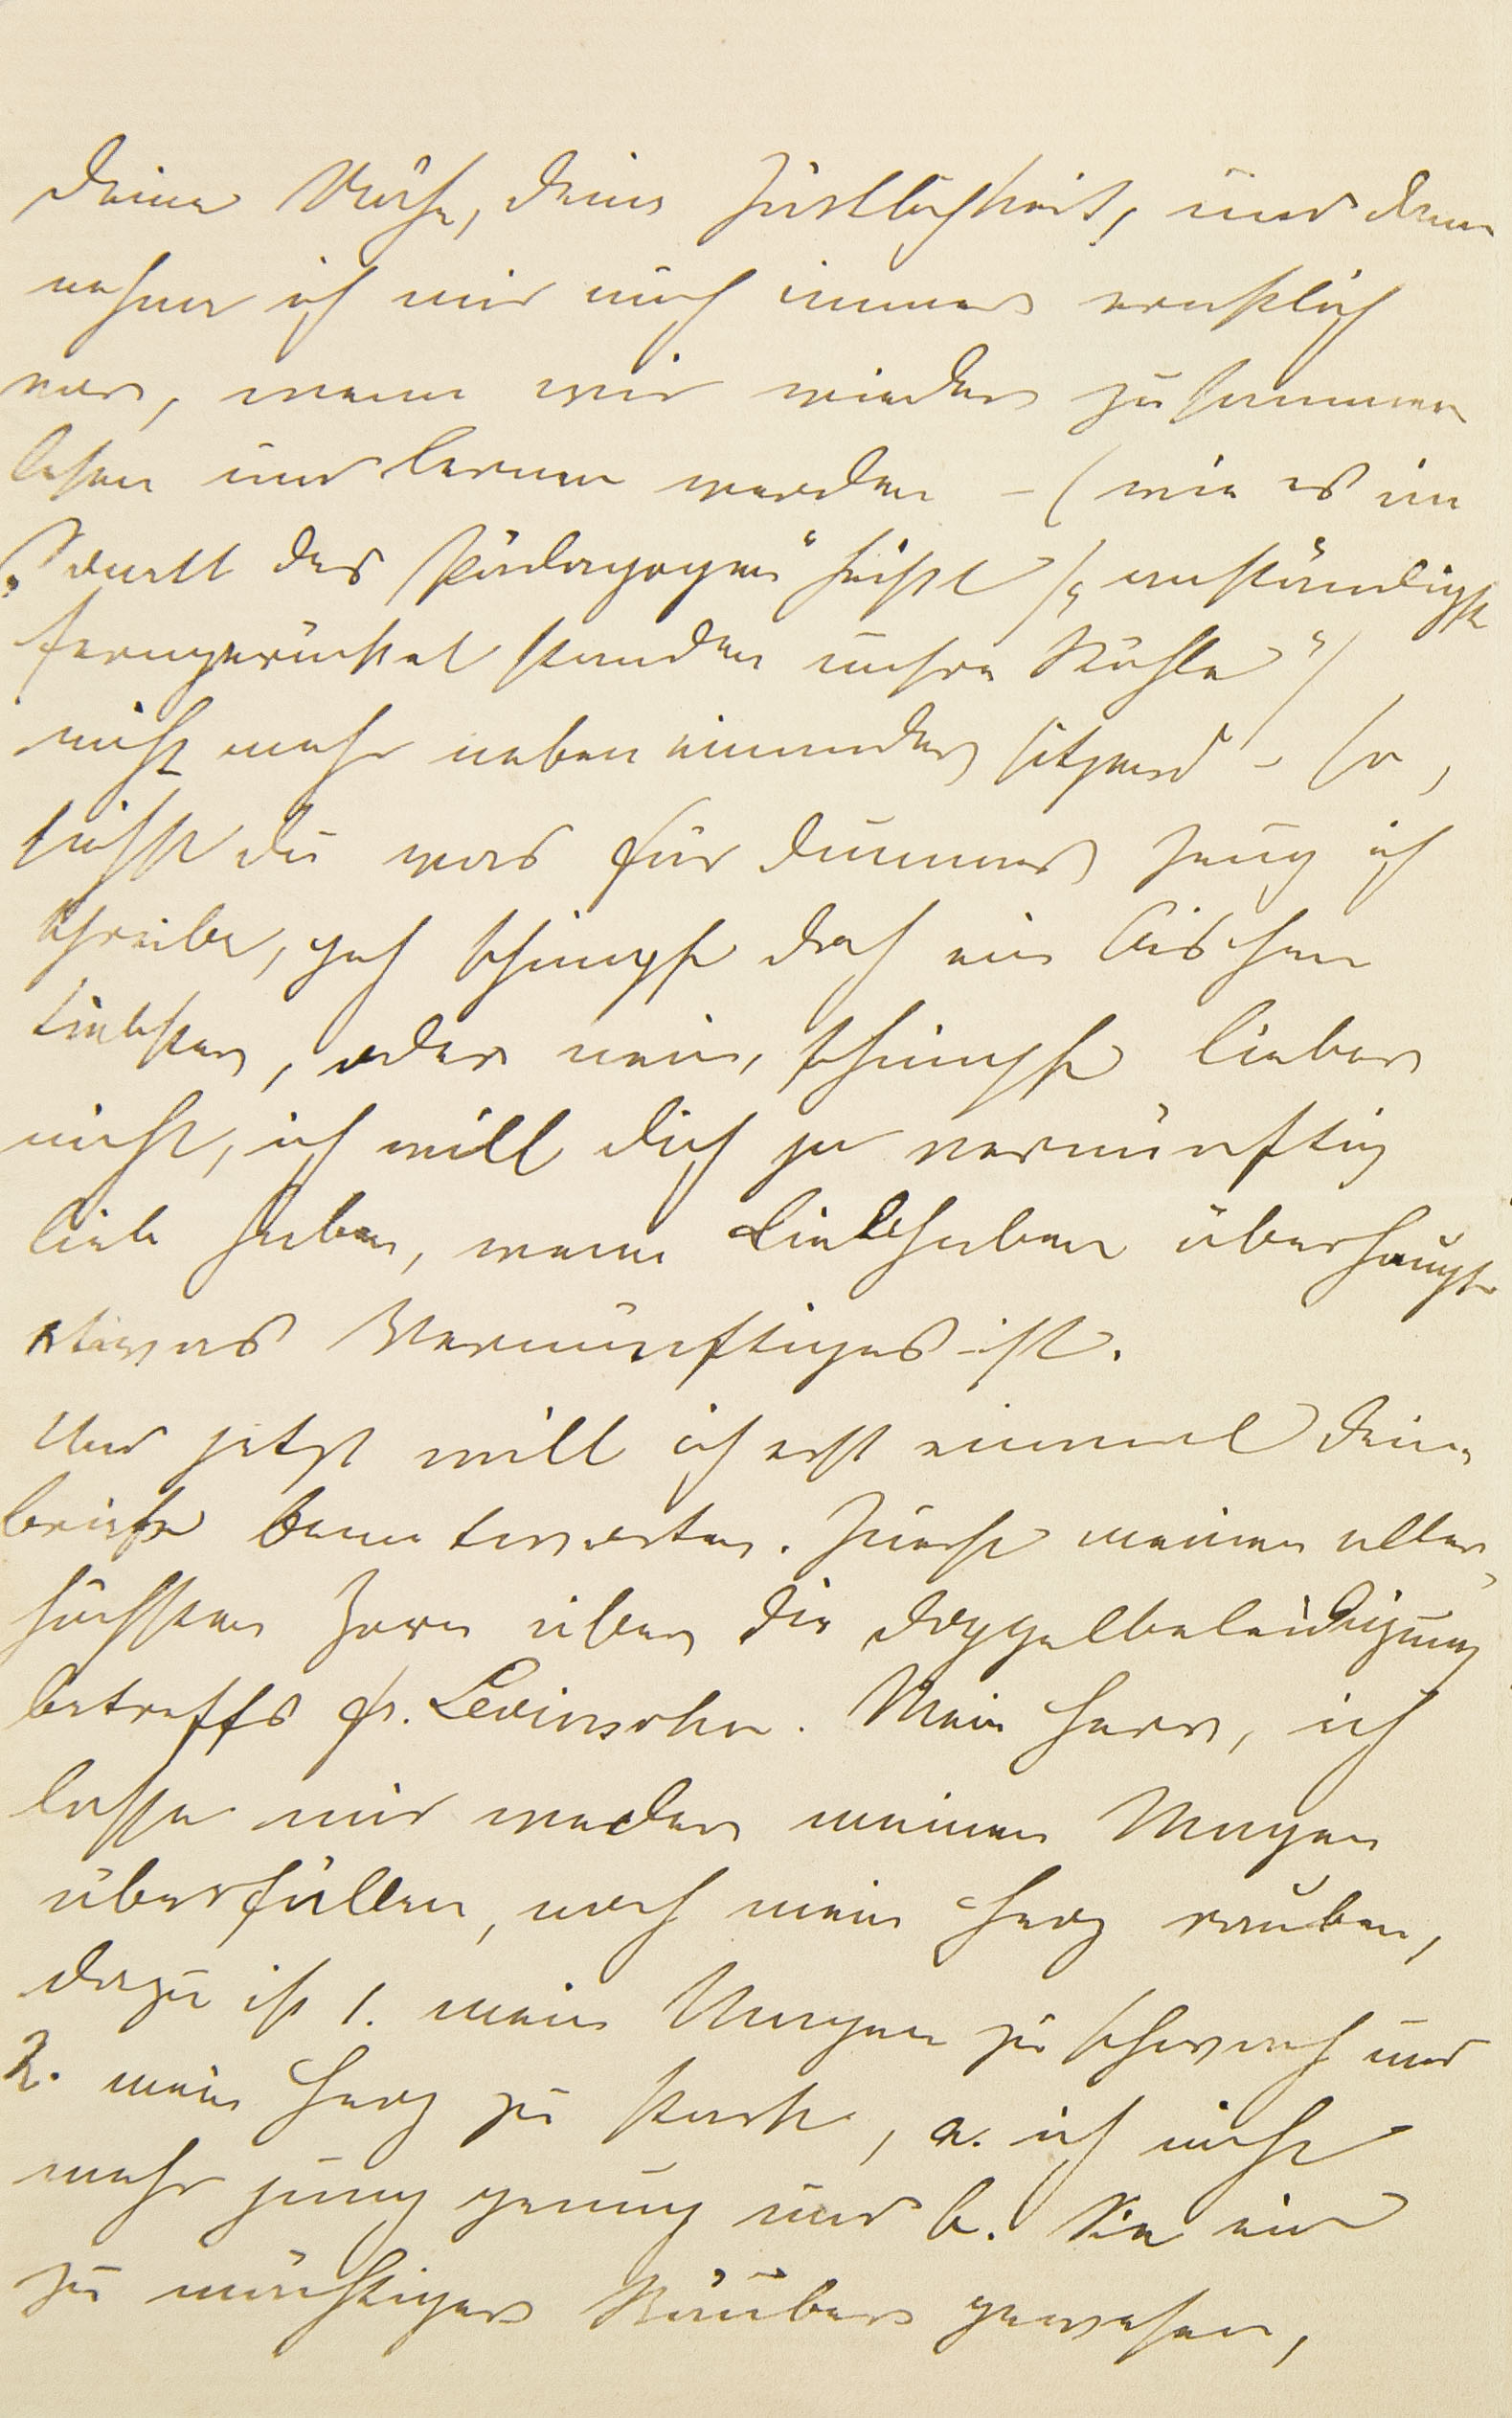 Deine Nähe, Deine Zärtlichkeit, und dann
nehme ich mir auch immer ernstlich
vor, wenn wir wieder zusammen
lesen und lernen werden – (wie es im
„Duett des Pädagogen“ heißt) („anständigst
ferngerücket standen unsre Stühle“)
nicht mehr neben einander sitzend – so,
siehst Du was für dummes Zeug ich
schreibe, geh schimpfe doch ein bischen
Liebster, oder nein, schimpfe lieber
nicht, ich will Dich ja vernünftig
lieb haben, wenn Liebhaben überhaupt
etwas Vernünftiges ist.
Und jetzt will ich erst einmal Deine
Briefe beantworten. Zuerst meinen aller-
höchsten Zorn über die Doppelbeleidigung
betreffs Fr. Levinsohn. Mein Herr, ich
lasse mir weder meinen Magen
überfüllen, noch mein Herz rauben,
dazu ist 1. mein Magen zu schwach und
2. mein Herz zu stark, a. ich nicht
mehr jung genug und b. Sie ein
zu mächtiger Räuber gewesen,